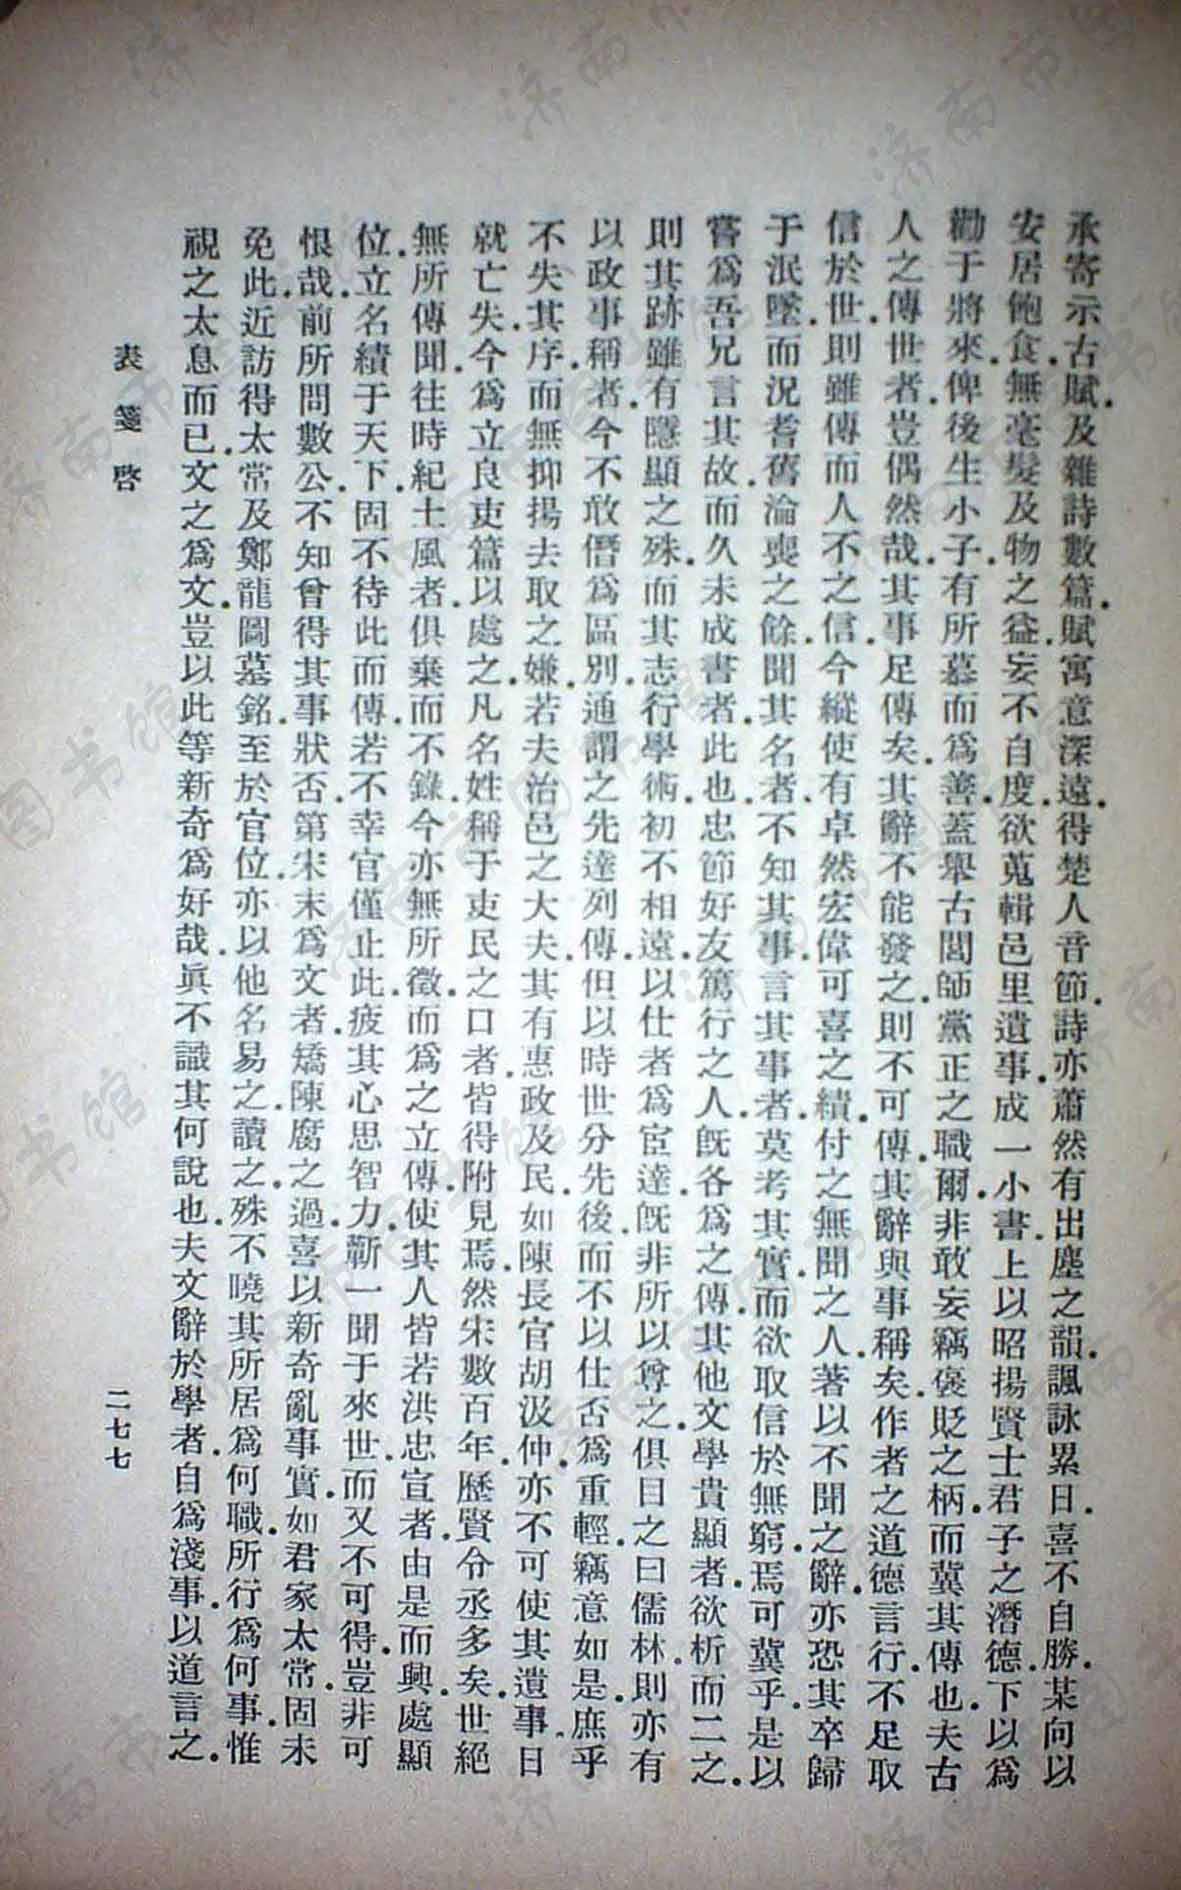 承寄示古賦.及雜詩數篇.賦寓意深遠.得楚人音節.詩亦蕭然有出塵之韻.諷詠累日.喜不自勝.某向以
安居飽食.無毫髮及物之益.妄不自度.欲蒐輯邑里遺事.成一小書.上以昭揚賢士君子之潛德.下以爲
勸于將來.俾後生小子.有所慕而爲善.蓋舉古閭師黨正之職爾.非敢妄竊褒貶之柄.而冀其傳也.夫古
人之傳世者.豈偶然哉.其事足傳矣.其辭不能發之.則不可傳.其辭與事稱矣.作者之道德言行.不足取
信於世.則雖傳而人不之信.今縱使有卓然宏偉可喜之績.付之無聞之人.著以不聞之辭.亦恐其卒歸
于泯墜.而況耆舊淪喪之餘.聞其名者.不知其事.言其事者.莫考其實.而欲取信於無窮.焉可冀乎.是以
嘗爲吾兄言其故.而久未成書者.此也.忠節好友篤行之人.旣各爲之傳.其他文學貴顯者.欲析而二之.
則其跡雖有隱顯之殊.而其志行學術.初不相遠.以仕者爲宦達.旣非所以尊之.俱目之曰儒林.則亦有
以政事稱者.今不敢僭爲區別.通謂之先達列傳.但以時世分先後.而不以仕否爲重輕.竊意如是.庶乎
不失其序.而無抑揚去取之嫌.若夫治邑之大夫.其有惠政及民.如陳長官胡汲仲.亦不可使其遺事.日
就亡失.今爲立良吏篇以處之.凡名姓稱于吏民之口者.皆得附見焉.然宋數百年.歷賢令丞多矣.世絕
無所傳聞.往時紀土風者.俱棄而不錄.今亦無所徵.而爲之立傳.使其人皆若洪忠宣者.由是而興.處顯
位.立名績于天下.固不待此而傳.若不幸官僅止此.疲其心思智力.蘄一聞于來世.而又不可得.豈非可
恨哉.前所問數公.不知曾得其事狀否.第宋末爲文者.矯陳腐之過.喜以新奇亂事實.如君家太常.固未
免此.近訪得太常及鄭龍圖墓銘.至於官位.亦以他名易之.讀之.殊不曉其所居爲何職.所行爲何事.惟
視之太息而已.文之爲文.豈以此等新奇爲好哉.眞不識其何說也.夫文辭於學者.自爲淺事.以道言之.
表箋啓
二七七